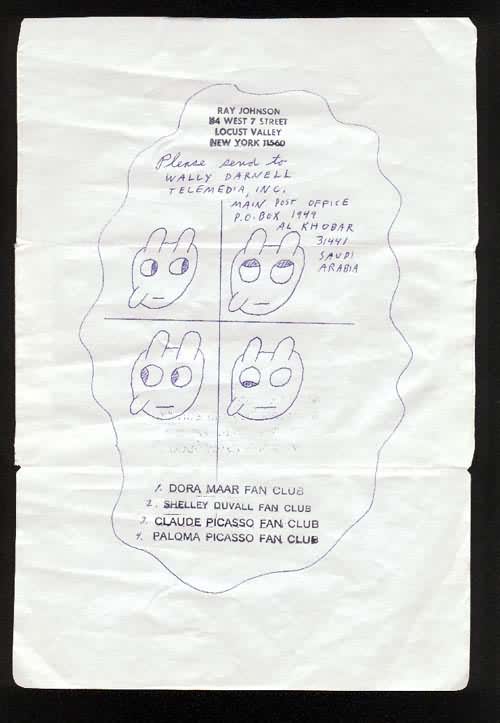 RAY JOHNSON
44 WEST 7 STREET
LOCUST VALLEY
NEW YORK 11560
Please send to
WALLY DARNELL
TELEMEDIA, INC.
MAIN POST OFFICE
P.O. BOX 1949
AL KHOBAR
31441
SAUDI
ARABIA
1. DORA MAAR FAN CLUB
2. SHELLEY DUVALL FAN CLUB
3. CLAUDE PICASSO FAN CLUB
4. PALOMA PICASSO FAN CLUB